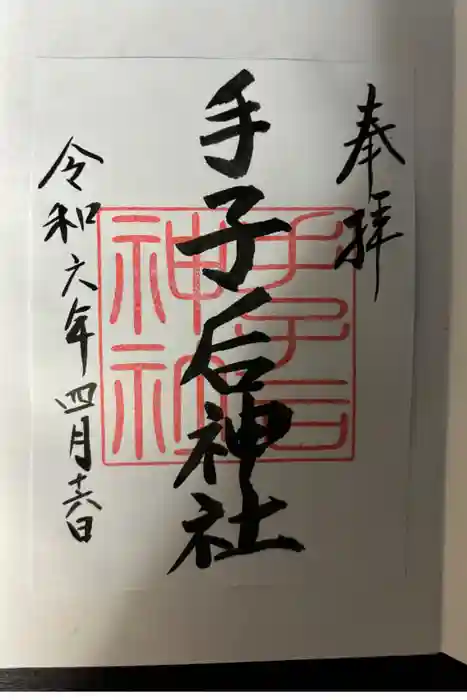 奉拝
手子后神社
令和六年四月十六日
手子后
神社